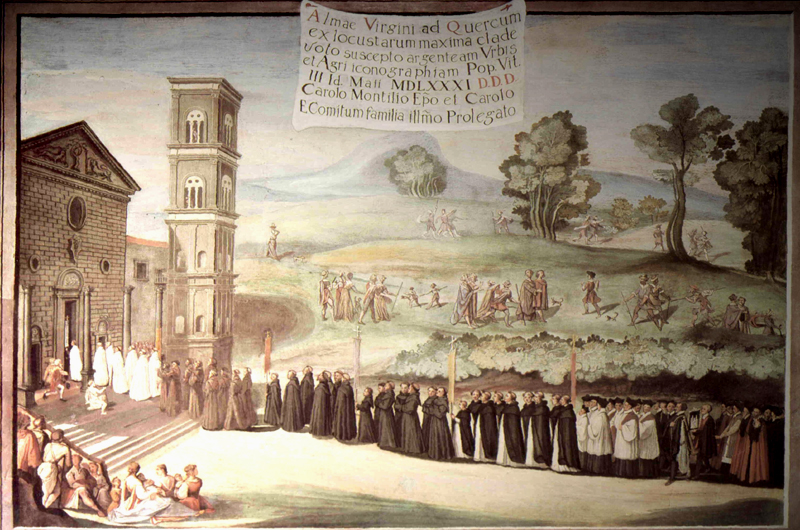 Almae Virgini ad Quercum
ex locustarum maxima clade
voto suscepto argenteam Vrbis
et Agri iconographiam Pop. Vit.
III Id. Maii MDLXXXI D.D.D.
Carolo Montilio Epo et Carolo
E Comitum familia illmo Prolegato